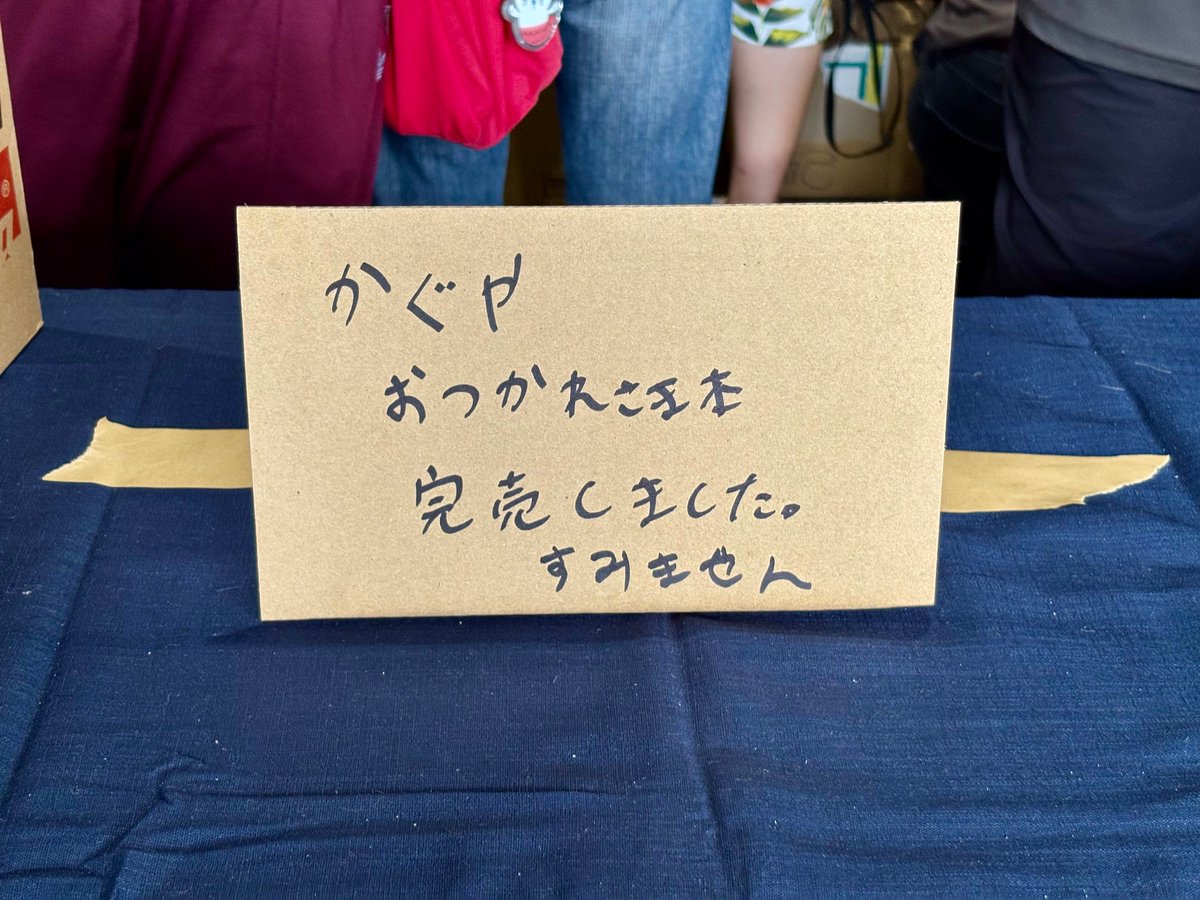 かぐや
おつかれさま本
完売しました。
すみません